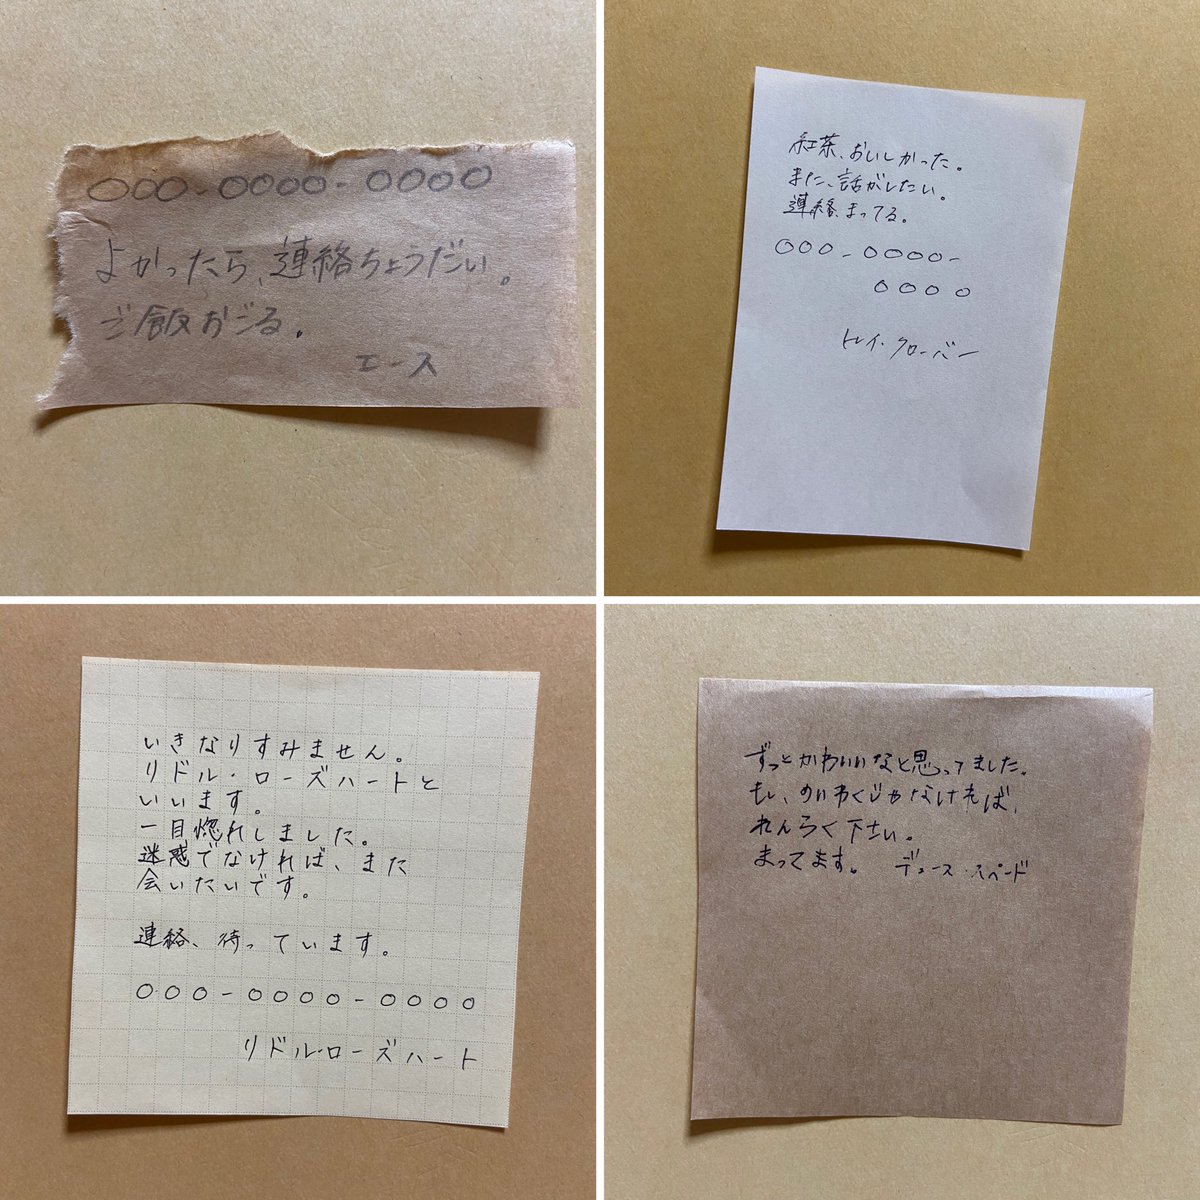 000-0000-0000
よかったら、連絡ちょうだい。
ご飯おごる。
エース
紅茶、おいしかった。
また、話がしたい。
連絡、まってる。
000-0000-
0000
トレイ・クローバー
いきなりすみません。
リドル・ローズハートと
いいます。
一目惚れしました。
迷惑でなければ、また
会いたいです。
連絡、待っています。
000-0000-0000
リドル・ローズハート
ずっとかわいいなと思ってました。
もし、めいわくじゃなければ、
れんらく下さい。
まってます。 デュース・スペード